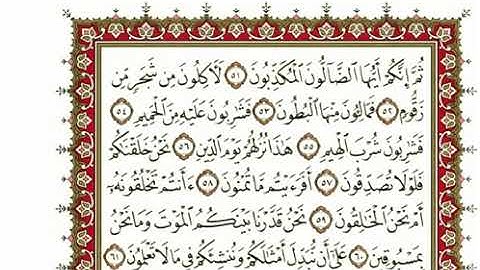 ثُمَّ إِنَّكُمْ أَيُّهَا الضَّالُّونَ الْمُكَذِّبُونَ ٥١ لَآكِلُونَ مِن شَجَرٍ مِّن
زَقُّومٍ ٥٢ فَمَالِـُٔونَ مِنْهَا الْبُطُونَ ٥٣ فَشَارِبُونَ عَلَيْهِ مِنَ الْحَمِيمِ ٥٤
فَشَارِبُونَ شُرْبَ الْهِيمِ ٥٥ هَٰذَا نُزُلُهُمْ يَوْمَ الدِّينِ ٥٦ نَحْنُ خَلَقْنَاكُمْ
فَلَوْلَا تُصَدِّقُونَ ٥٧ أَفَرَءَيْتُم مَّا تُمْنُونَ ٥٨ ءَأَنتُمْ تَخْلُقُونَهُۥٓ
أَمْ نَحْنُ الْخَالِقُونَ ٥٩ نَحْنُ قَدَّرْنَا بَيْنَكُمُ الْمَوْتَ وَمَا نَحْنُ
بِمَسْبُوقِينَ ٦٠ عَلَىٰٓ أَن نُّبَدِّلَ أَمْثَالَكُمْ وَنُنشِئَكُمْ فِي مَا لَا تَعْلَمُونَ ٦١